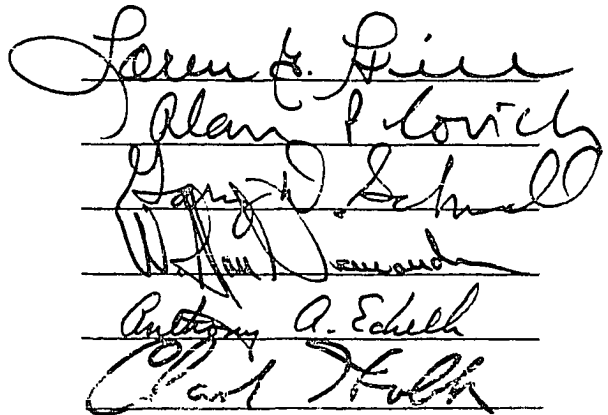 Loren G. Hill
Alan P Covich
Gary D. Schnell
W.
Anthony A. Echelle
Clark